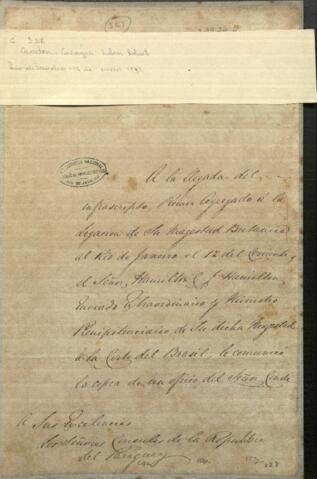 (327)
C 328
Rio de Janeiro, 16 de enero 1842
A la llegada del
infrascripto, Primer Agregado á la
Legacion de Su Magestad Britanica
al Rio de Janeiro el 12 del Corriente,
el Señor Hamilton C. J. Hamilton,
Enviado Extraordinario y Ministro
Plenipotenciario de Su dicha Magestad
à la Corte del Brasil, le comunicó
la copia de un oficio del Señor Conde
A Sus Excelencias
Los Señores Consules de la Republica
del Paraguay